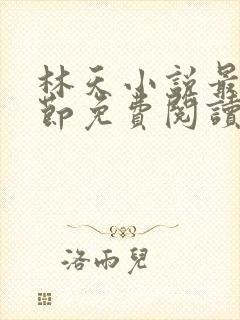 林天小説最
節免費閱讀
洛雨兒